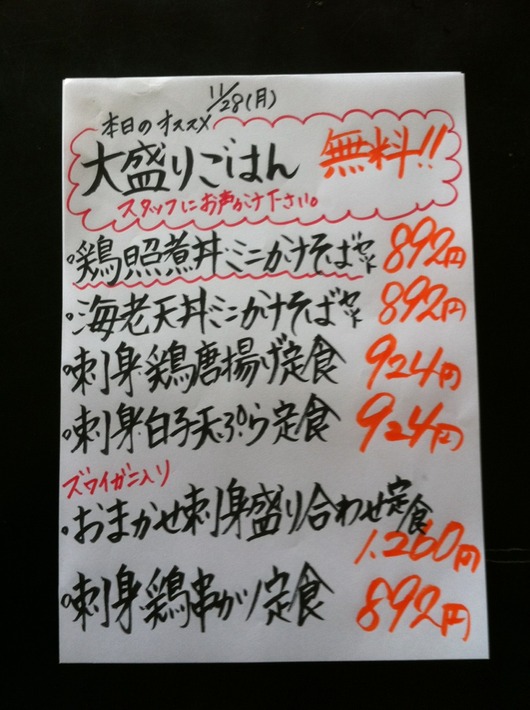 11/28(月)
本日のオススメ
大盛りごはん 無料!!
スタッフにお声がけ下さい。
・鶏照煮丼ミニかけそばセット 892円
・海老天丼ミニかけそばセット 892円
・刺身鶏唐揚げ定食 924円
・刺身白子天ぷら定食 924円
ズワイガニ入り
・おまかせ刺身盛り合わせ定食
1,260円
・刺身鶏串カツ定食 892円